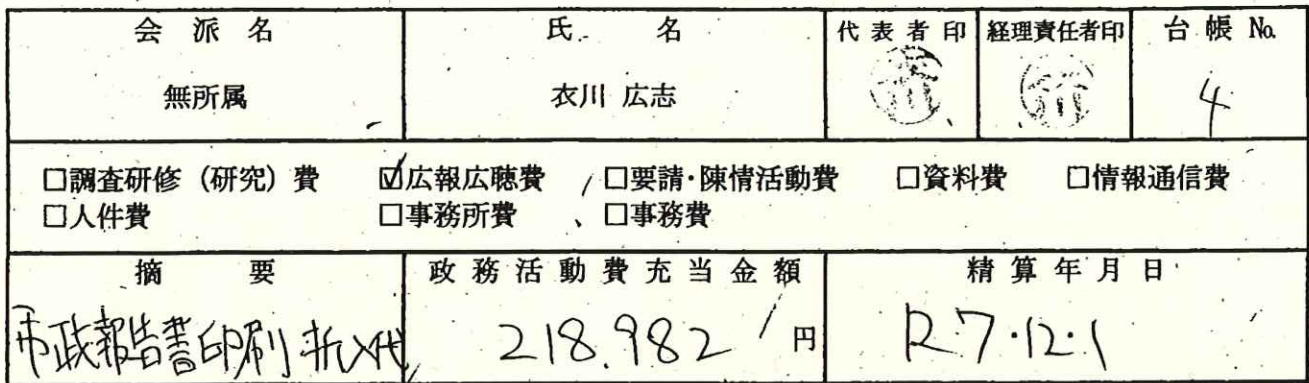 会派名 氏名 代表者印 経理責任者印 台帳No.
無所属 衣川 広志 4
□調査研修(研究)費 ☑広報広聴費 □要請・陳情活動費 □資料費 □情報通信費
□人件費 □事務所費 □事務費
摘要 政務活動費充当金額 精算年月日
市政報告書印刷折込代 218.982円 R7.12.1